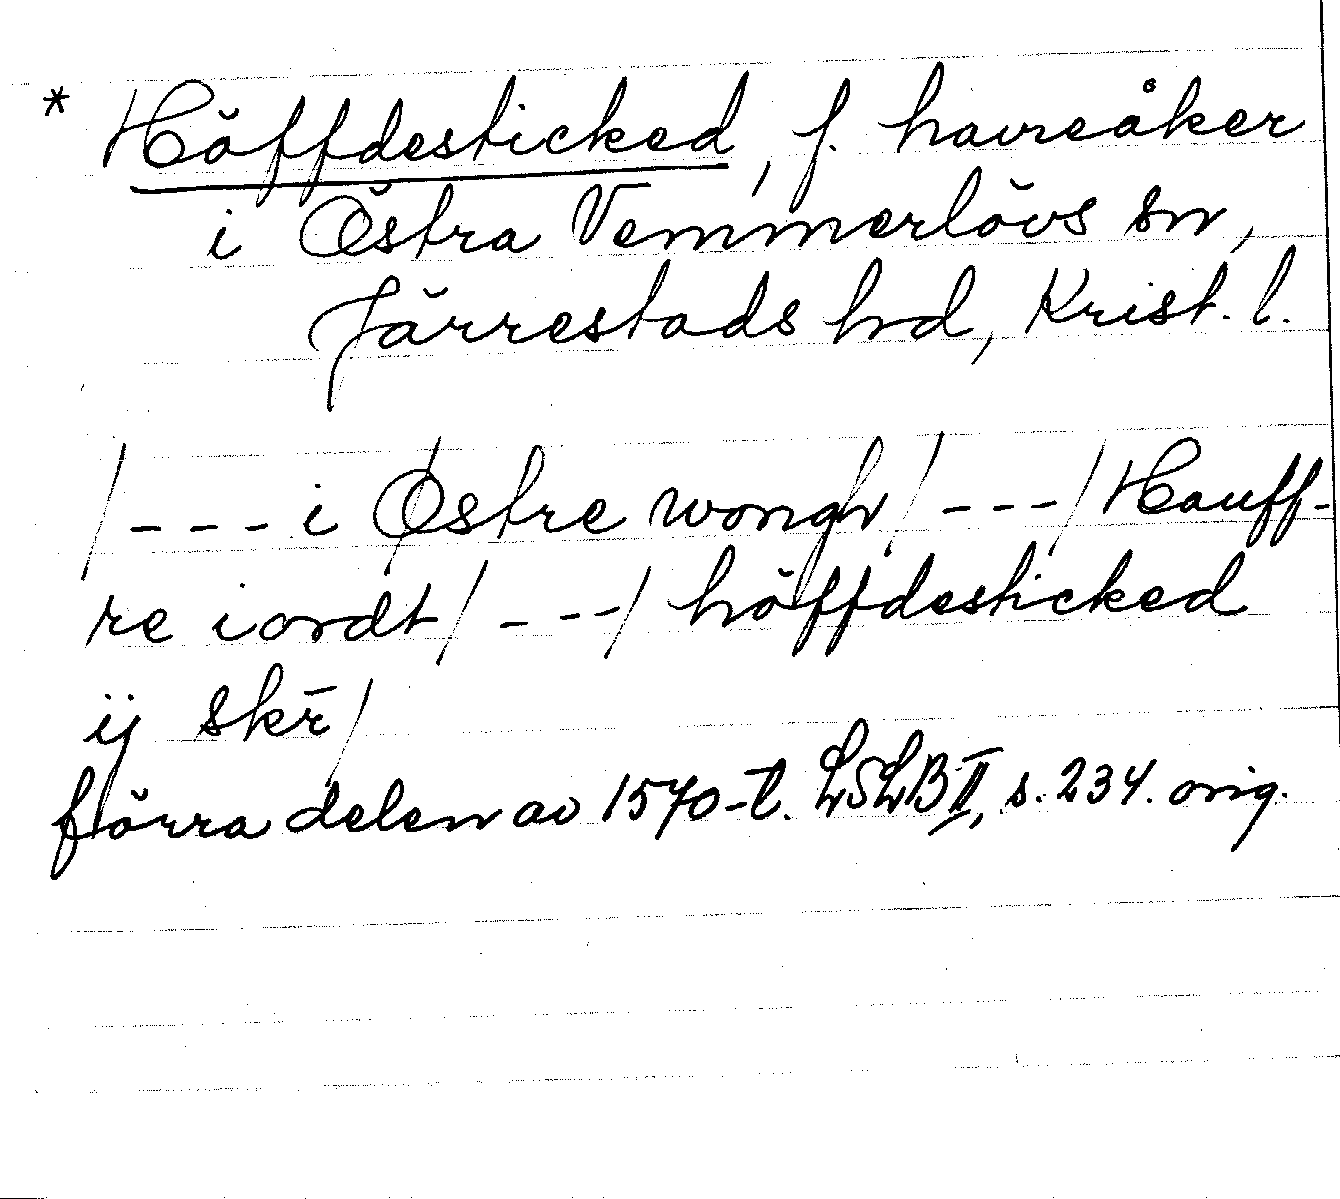 * Höffdesticked, f. havreåker
i Östra Vemmerlövs sn,
Järrestads hd, Krist. l.
/--- i Østre wongh/ ---/ Hauff-
re iordt/ ---/ höffdesticked
ij skr̄/
förra delen av 1570-t. LSLB II, s. 234. orig.